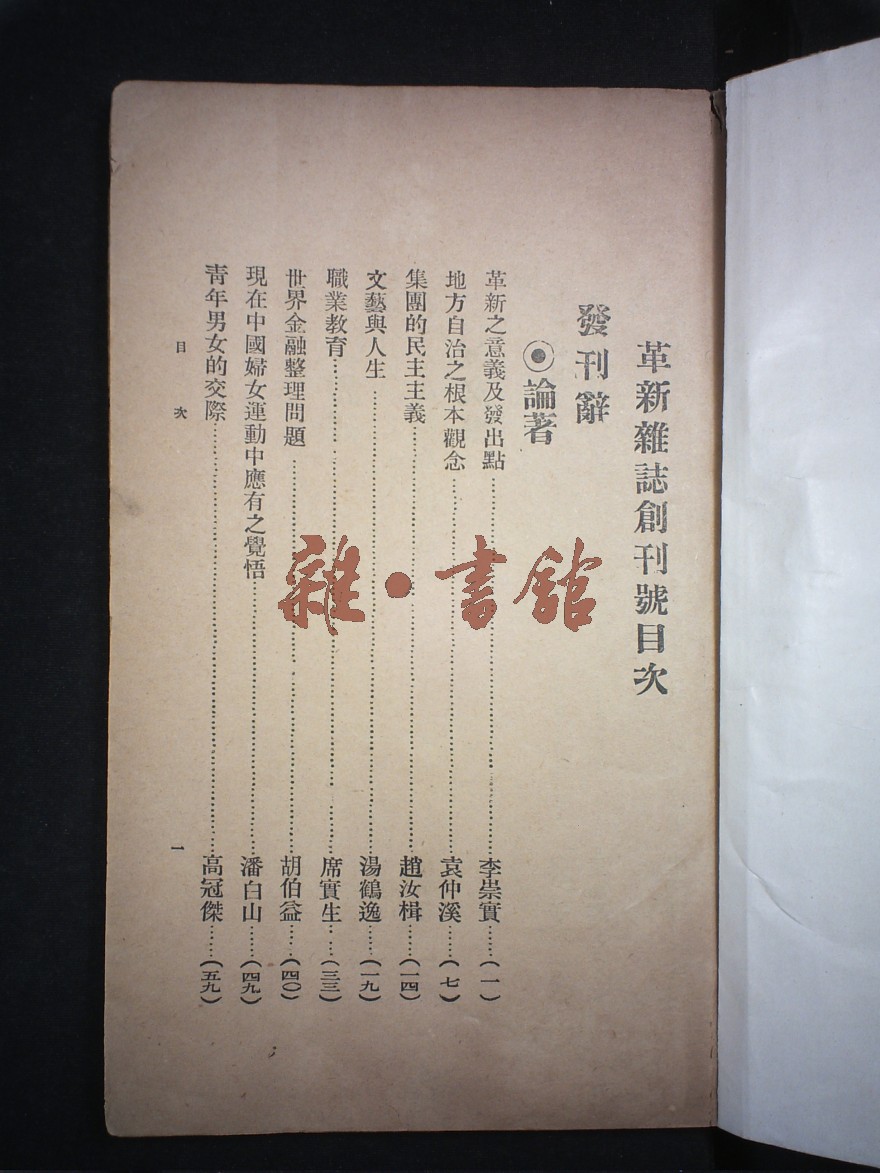 革新雜誌創刊號目次
發刊辭
◉論著
革新之意義及發出點……李崇實……(一)
地方自治之根本觀念……袁仲溪……(七)
集團的民主主義……趙汝楫……(一四)
文藝與人生……湯鶴逸……(一九)
職業教育……席實生……(三三)
世界金融整理問題……胡伯益……(四〇)
現在中國婦女運動中應有之覺悟……潘白山……(四九)
靑年男女的交際……高冠傑……(五九)
目次 一
雜·書館